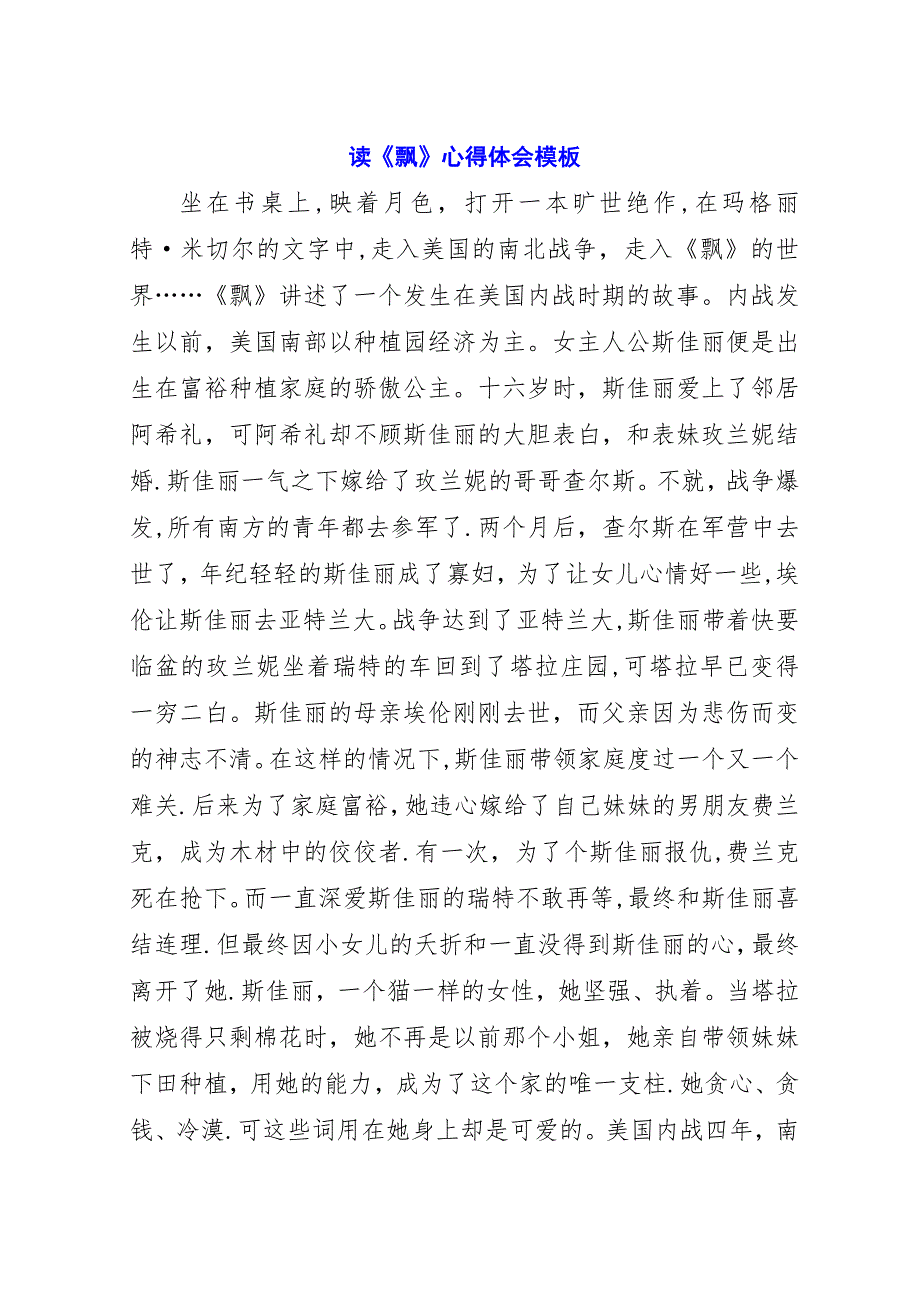 读《飘》心得体会模板
坐在书桌上,映着月色，打开一本旷世绝作,在玛格丽
特·米切尔的文字中,走入美国的南北战争，走入《飘》的世
界……《飘》讲述了一个发生在美国内战时期的故事。内战发
生以前，美国南部以种植园经济为主。女主人公斯佳丽便是出
生在富裕种植家庭的骄傲公主。十六岁时，斯佳丽爱上了邻居
阿希礼，可阿希礼却不顾斯佳丽的大胆表白，和表妹玫兰妮结
婚.斯佳丽一气之下嫁给了玫兰妮的哥哥查尔斯。不就，战争爆
发,所有南方的青年都去参军了.两个月后，查尔斯在军营中去
世了，年纪轻轻的斯佳丽成了寡妇，为了让女儿心情好一些,埃
伦让斯佳丽去亚特兰大。战争达到了亚特兰大,斯佳丽带着快要
临盆的玫兰妮坐着瑞特的车回到了塔拉庄园,可塔拉早已变得
一穷二白。斯佳丽的母亲埃伦刚刚去世，而父亲因为悲伤而变
的神志不清。在这样的情况下,斯佳丽带领家庭度过一个又一个
难关.后来为了家庭富裕,她违心嫁给了自己妹妹的男朋友费兰
克，成为木材中的佼佼者.有一次，为了个斯佳丽报仇,费兰克
死在抢下。而一直深爱斯佳丽的瑞特不敢再等,最终和斯佳丽喜
结连理.但最终因小女儿的夭折和一直没得到斯佳丽的心,最终
离开了她.斯佳丽，一个猫一样的女性，她坚强、执着。当塔拉
被烧得只剩棉花时，她不再是以前那个小姐，她亲自带领妹妹
下田种植，用她的能力，成为了这个家的唯一支柱.她贪心、贪
钱、冷漠.可这些词用在她身上却是可爱的。美国内战四年，南